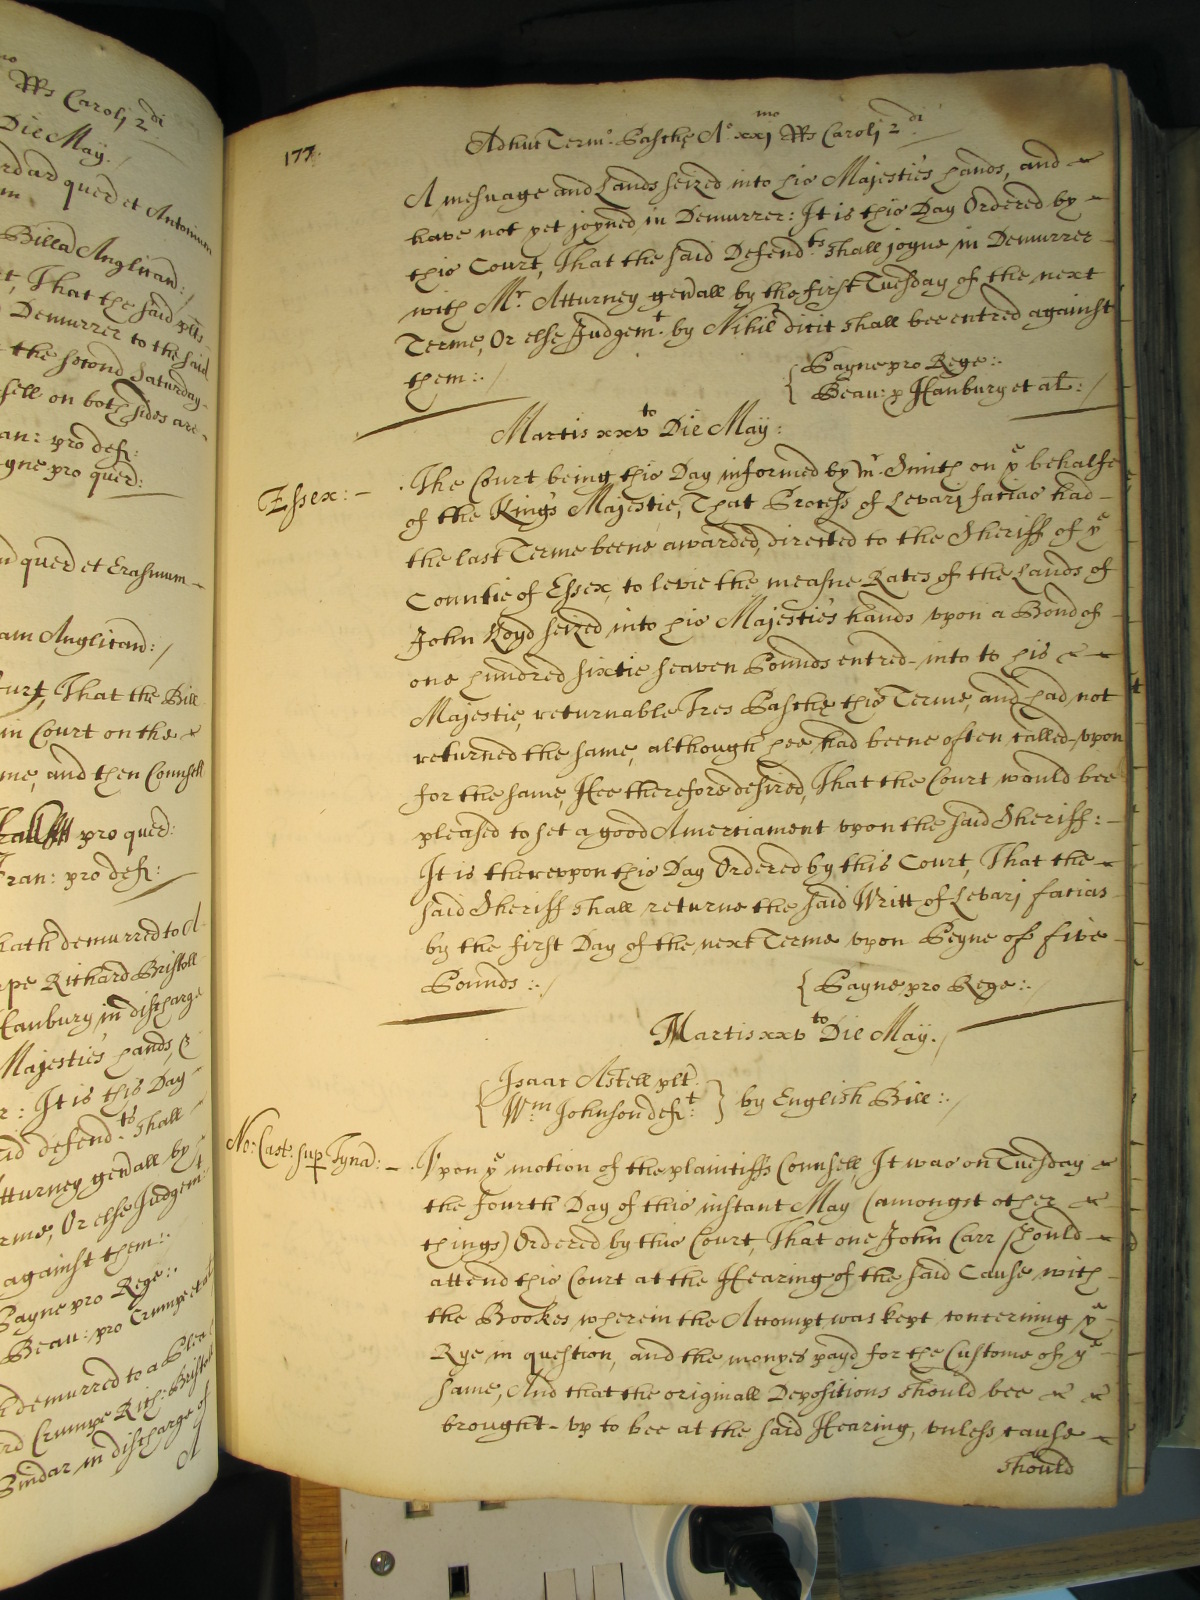 mo RRs Caroli 2di
Die May./
quer et Antonium
Billa Anglicana:/
t, That the said plts
Demurrer to the said
the second Saturday
sell on both sides are
an: pro def:
gne pro quer:
quer et Erasmum
am Anglicana:/
urt, That the Bill
in Court on the
me, and then Counsell
pro quer:
Fran: pro def:
hath demurred to A
pe Richard Bristoll
Hanbury in discharge
Majesties hands, &
r: It is this Day
id defendts shall
Atturney gerall by
rme, Or else Judgemt
against them:.
Payne pro Rege:.
Beau: pro Crumpe et al
demurred to a Plea
rd Crumpe Rich: Bristoll
in discharge of
A
177.
Adhuc Termo Pasche Ao xxjmo RRs Caroli 2di
A mesuage and Lands seized into his Majesties hands, and
have not yet joyned in Demurrer: It is this Day Ordered by
this Court, That the said Defendts shall joyne in Demurrer
with Mr. Atturney gerall by the first Tuesday of the next
Terme, Or else Judgemt by Nihil dicit shall bee entred against
them:./
Payne pro Rege:.
Beau: p Hanbury et al:/
Martis xxvto Die May:
Essex:- The Court being this Day informed by Mr. Smith on ye behalfe
of the Kings Majestie, That Process of Levari facias had
the last Terme beene awarded, directed to the Sheriff of ye
Countie of Essex, to levie the measne Rates of the Lands of
John Loyd seized into his Majesties hands upon a Bond of
one hundred sixtie seaven Pounds entred into to his
Majestie, returnable Tres Pasche this Terme, and had not
returned the same, although hee had beene often called upon
for the same, Hee therefore desired, That the Court would bee
pleased to set a good Amerciament upon the said Sheriff:-
It is thereupon this Day Ordered by this Court, That the
said Sheriff shall returne the said Writt of Levari facias
by the first Day of the next Terme upon Peyne of five
Pounds:./
Payne pro Rege:.
Martis xxvto Die May./
Isaac Astell plt
Wm Johnson deft: by English Bill:./
No: Cast: sup Tynd:- Upon ye motion of the plaintiffs Counsell, It was on Tuesday
the fourth Day of this instant May (amongst other
things) Ordered by this Court, That one John Carr should
attend this Court at the Hearing of the said Cause with
the Bookes wherein the Accompt was kept concerning ye
Rye in question, and the monyes payd for the Custome of ye
same, And that the originall Depositions should bee
brought up to bee at the said Hearing, unless cause
should